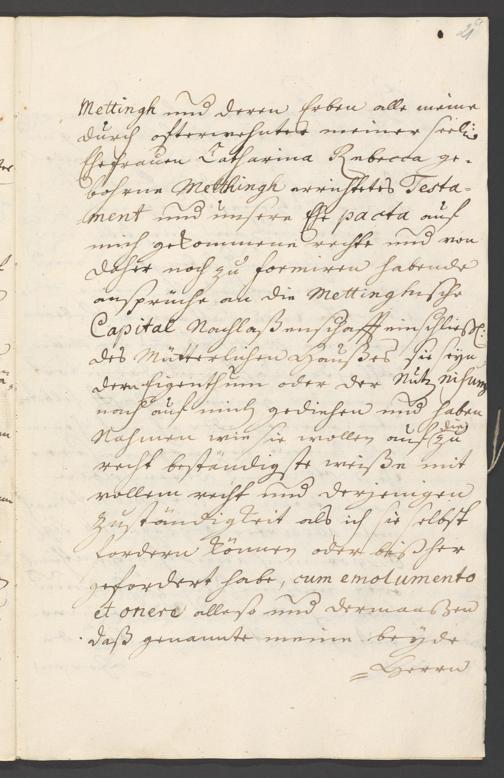 21
Mettingh und deren Erben alle meine
durch offterwehntes meiner seelig
Ehefrauen Catharina Rebecca ge-
bohrne Metthingh errichtetes Testa-
ment und unsere Ehe pacta auf
mich gekommene rechte und von
daher noch zu formiren habende
ansprüche an die Mettinghische
Capital Nachlaßenschafft einschließl:
des Mütterlichen Haußes, sie seyn
dem Eigenthum oder der Nutznießung
nach auf mich gediehen und haben
Nahmen wie sie wollen auf die zu
recht beständigste weiße mit
vollem recht und derjenigen
Zuständigkeit als ich sie selbst
fordern können oder bißher
gefordert habe, cum emolumento
et onere alleß und dermaaßen
daß genannte meine beyde
Herrn